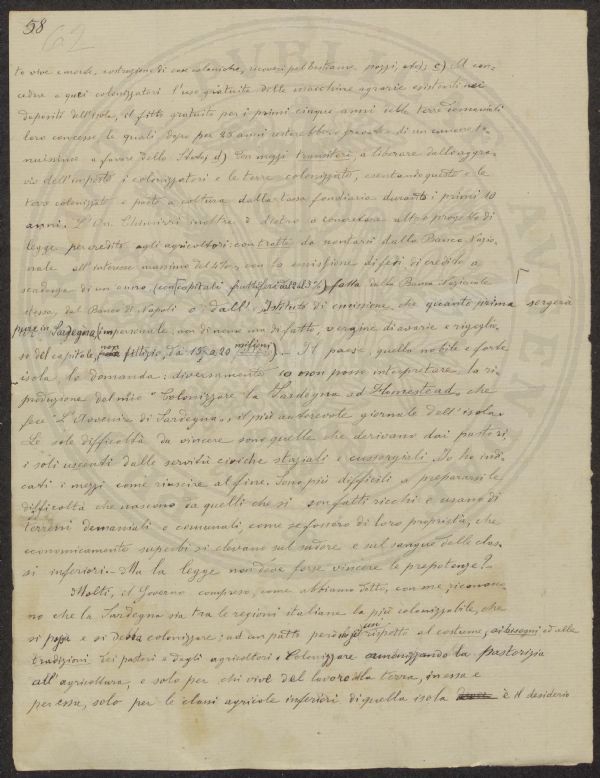 58
62
te vive e morte, costruzione di case coloniche, ricoveri pel bestiame, pozzi, etc); c) Al con-
cedere a quei colonizzatori l'uso gratuito delle macchine agrarie esistenti nei
depositi dell'isola, il fitto gratuito per i primi cinque anni delle terre demaniali
loro concesse, le quali dopo per 25 anni resterebbero gravate di un canone te-
nuissimo a favore dello Stato; d) Con mezzi transitori, a liberare dallo aggra-
vio dell'imposta i colonizzatori e le terre colonizzate, esentando queste e le
terre colonizzate e poste a coltura dalla tassa fondiaria durante i primi 10
anni. L'On. Chimirri inoltre è dietro a concretare altro progetto di
legge per credito agli agricoltori: contratto da scontarsi dalla Banca Nazio-
nale all'interesse massimo del 4%, con la emissione di fedi di credito a
scadenza di un anno (con capitali fruttiferi del 2 al 3%) fatta dalla Banca Nazionale
stessa, dal Banco di Napoli o dall' Istituto di emissione, che quanto prima sorgerà
pure in Sardegna (impersonale, non di nome ma di fatto, vergine di avarie e rigoglio-
so del capitale, non fittizio, da 15 a 20 milioni). - Il paese, quella nobile e forte
isola lo domanda: diversamente io non posso interpretare la ri-
produzione del mio "Colonizzare la Sardegna ad Homestead" che
fece "L'Avvenire di Sardegna", il più autorevole giornale dell'isola.
Le sole difficoltà da vincere sono quelle che derivano dai pastori,
i soli uscenti dalle servitù civiche stazzali e cussorgiali. Io ho indi-
cati i mezzi come riescire al fine. Sono più difficili a prepararsi le
difficoltà che nascono da quelli che si son fatti ricchi e usano di
terreni demaniali e comunali, come se fossero di loro proprietà, che
economicamente superbi si elevano sul sudore e sul sangue delle clas-
si inferiori. - Ma la legge non deve forse vincere le prepotenze? -
Molti, il Governo compreso, come abbiamo detto, con me, riconosco-
no che la Sardegna sia tra le regioni italiane la più colonizzabile, che
si possa e si debba colonizzare: ad un patto però, in un rispetto al costume, ai bisogni ed alle
tradizioni dei pastori e degli agricoltori. Colonizzare armonizzando la pastorizia
all'agricoltura, e solo per chi vive del lavoro della terra, in essa e
per essa, solo per le classi agricole inferiori di quella isola è il desiderio